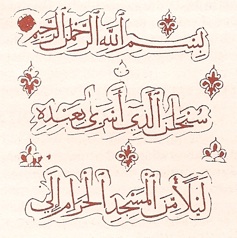 بسم الله الرحمن الرحيم
سبحن الذي أسرى بعبده
ليلا من المسجد الحرام إلى